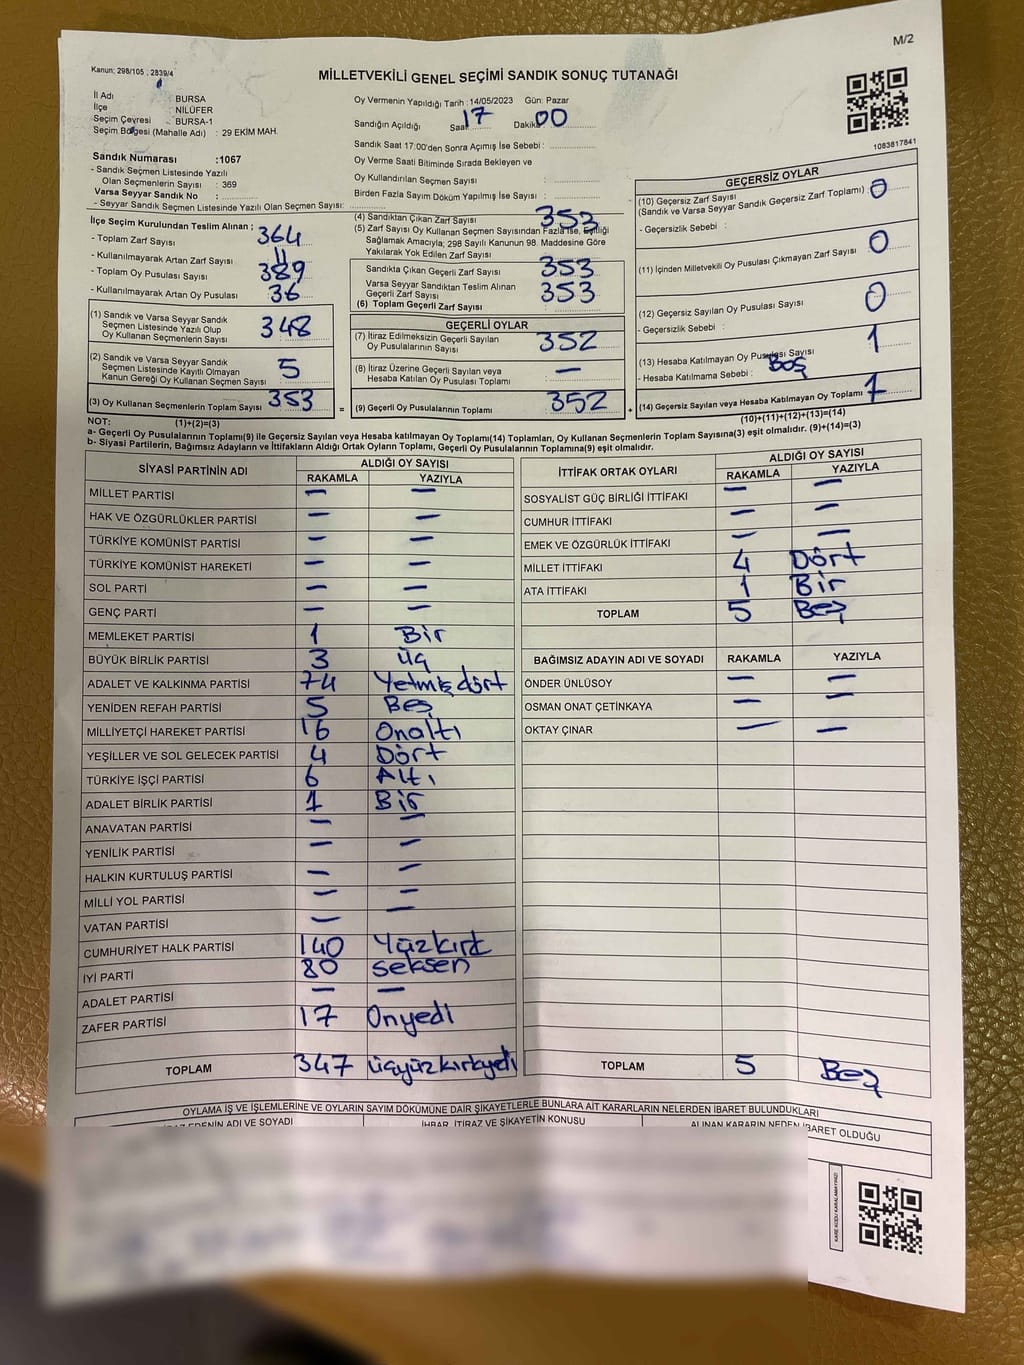 M/2
Kanun: 298/105 , 2839/4
MİLLETVEKİLİ GENEL SEÇİMİ SANDIK SONUÇ TUTANAĞI
İl Adı : BURSA
İlçe : NİLÜFER
Seçim Çevresi : BURSA-1
Seçim Bölgesi (Mahalle Adı) : 29 EKİM MAH.
Oy Vermenin Yapıldığı Tarih : 14/05/2023 Gün: Pazar
Sandığın Açıldığı Saat 17 Dakika 00
Sandık Saat 17:00'den Sonra Açımış İse Sebebi :
Oy Verme Saati Bitiminde Sırada Bekleyen ve
Oy Kullandırılan Seçmen Sayısı :
Birden Fazla Sayım Döküm Yapılmış İse Sayısı :
1083817841
Sandık Numarası :1067
- Sandık Seçmen Listesinde Yazılı
Olan Seçmenlerin Sayısı : 369
Varsa Seyyar Sandık No :
- Seyyar Sandık Seçmen Listesinde Yazılı Olan Seçmen Sayısı:
İlçe Seçim Kurulundan Teslim Alınan :
- Toplam Zarf Sayısı 364
- Kullanılmayarak Artan Zarf Sayısı : 11
- Toplam Oy Pusulası Sayısı 389
- Kullanılmayarak Artan Oy Pusulası 36
(1) Sandık ve Varsa Seyyar Sandık
Seçmen Listesinde Yazılı Olup
Oy Kullanan Seçmenlerin Sayısı 348
(2) Sandık ve Varsa Seyyar Sandık
Seçmen Listesinde Kayıtlı Olmayan
Kanun Gereği Oy Kullanan Seçmen Sayısı 5
(3) Oy Kullanan Seçmenlerin Toplam Sayısı 353
(4) Sandıktan Çıkan Zarf Sayısı 353
(5) Zarf Sayısı Oy Kullanan Seçmen Sayısından Fazla İse, Eşitliği
Sağlamak Amacıyla; 298 Sayılı Kanunun 98. Maddesine Göre
Yakılarak Yok Edilen Zarf Sayısı
Sandıkta Çıkan Geçerli Zarf Sayısı 353
Varsa Seyyar Sandıktan Teslim Alınan
Geçerli Zarf Sayısı 353
(6) Toplam Geçerli Zarf Sayısı
GEÇERLİ OYLAR
(7) İtiraz Edilmeksizin Geçerli Sayılan
Oy Pusulalarının Sayısı 352
(8) İtiraz Üzerine Geçerli Sayılan veya
Hesaba Katılan Oy Pusulası Toplamı —
= (9) Geçerli Oy Pusulalarının Toplamı 352 +
GEÇERSİZ OYLAR
(10) Geçersiz Zarf Sayısı
(Sandık ve Varsa Seyyar Sandık Geçersiz Zarf Toplamı) : 0
- Geçersizlik Sebebi :
(11) İçinden Milletvekili Oy Pusulası Çıkmayan Zarf Sayısı 0
(12) Geçersiz Sayılan Oy Pusulası Sayısı 0
- Geçersizlik Sebebi :
(13) Hesaba Katılmayan Oy Pusulası Sayısı 1
- Hesaba Katılmama Sebebi : Boş
(14) Geçersiz Sayılan veya Hesaba Katılmayan Oy Toplamı 1
NOT: (1)+(2)=(3)
(10)+(11)+(12)+(13)=(14)
a- Geçerli Oy Pusulalarının Toplamı(9) ile Geçersiz Sayılan veya Hesaba katılmayan Oy Toplamı(14) Toplamları, Oy Kullanan Seçmenlerin Toplam Sayısına(3) eşit olmalıdır. (9)+(14)=(3)
b- Siyasi Partilerin, Bağımsız Adayların ve İttifakların Aldığı Ortak Oyların Toplamı, Geçerli Oy Pusulalarının Toplamına(9) eşit olmalıdır.
SİYASİ PARTİNİN ADI ALDIĞI OY SAYISI
RAKAMLA YAZIYLA
MİLLET PARTİSİ — —
HAK VE ÖZGÜRLÜKLER PARTİSİ — —
TÜRKİYE KOMÜNİST PARTİSİ — —
TÜRKİYE KOMÜNİST HAREKETİ — —
SOL PARTİ — —
GENÇ PARTİ — —
MEMLEKET PARTİSİ 1 Bir
BÜYÜK BİRLİK PARTİSİ 3 üç
ADALET VE KALKINMA PARTİSİ 74 Yetmiş dört
YENİDEN REFAH PARTİSİ 5 Beş
MİLLİYETÇİ HAREKET PARTİSİ 16 Onaltı
YEŞİLLER VE SOL GELECEK PARTİSİ 4 Dört
TÜRKİYE İŞÇİ PARTİSİ 6 Altı
ADALET BİRLİK PARTİSİ 1 Bir
ANAVATAN PARTİSİ — —
YENİLİK PARTİSİ — —
HALKIN KURTULUŞ PARTİSİ — —
MİLLİ YOL PARTİSİ — —
VATAN PARTİSİ — —
CUMHURİYET HALK PARTİSİ 140 Yüzkırk
İYİ PARTİ 80 seksen
ADALET PARTİSİ — —
ZAFER PARTİSİ 17 Onyedi
TOPLAM 347 üçyüzkırkyedi
İTTİFAK ORTAK OYLARI ALDIĞI OY SAYISI
RAKAMLA YAZIYLA
SOSYALİST GÜÇ BİRLİĞİ İTTİFAKI — —
CUMHUR İTTİFAKI — —
EMEK VE ÖZGÜRLÜK İTTİFAKI — —
MİLLET İTTİFAKI 4 Dört
ATA İTTİFAKI 1 Bir
TOPLAM 5 Beş
BAĞIMSIZ ADAYIN ADI VE SOYADI RAKAMLA YAZIYLA
ÖNDER ÜNLÜSOY — —
OSMAN ONAT ÇETİNKAYA — —
OKTAY ÇINAR — —
TOPLAM 5 Beş
OYLAMA İŞ VE İŞLEMLERİNE VE OYLARIN SAYIM DÖKÜMÜNE DAİR ŞİKAYETLERLE BUNLARA AİT KARARLARIN NELERDEN İBARET BULUNDUKLARI
EDENİN ADI VE SOYADI İHBAR, İTİRAZ VE ŞİKAYETİN KONUSU ALINAN KARARIN NEDEN İBARET OLDUĞU
KARE KODU KARALAMAYINIZ!